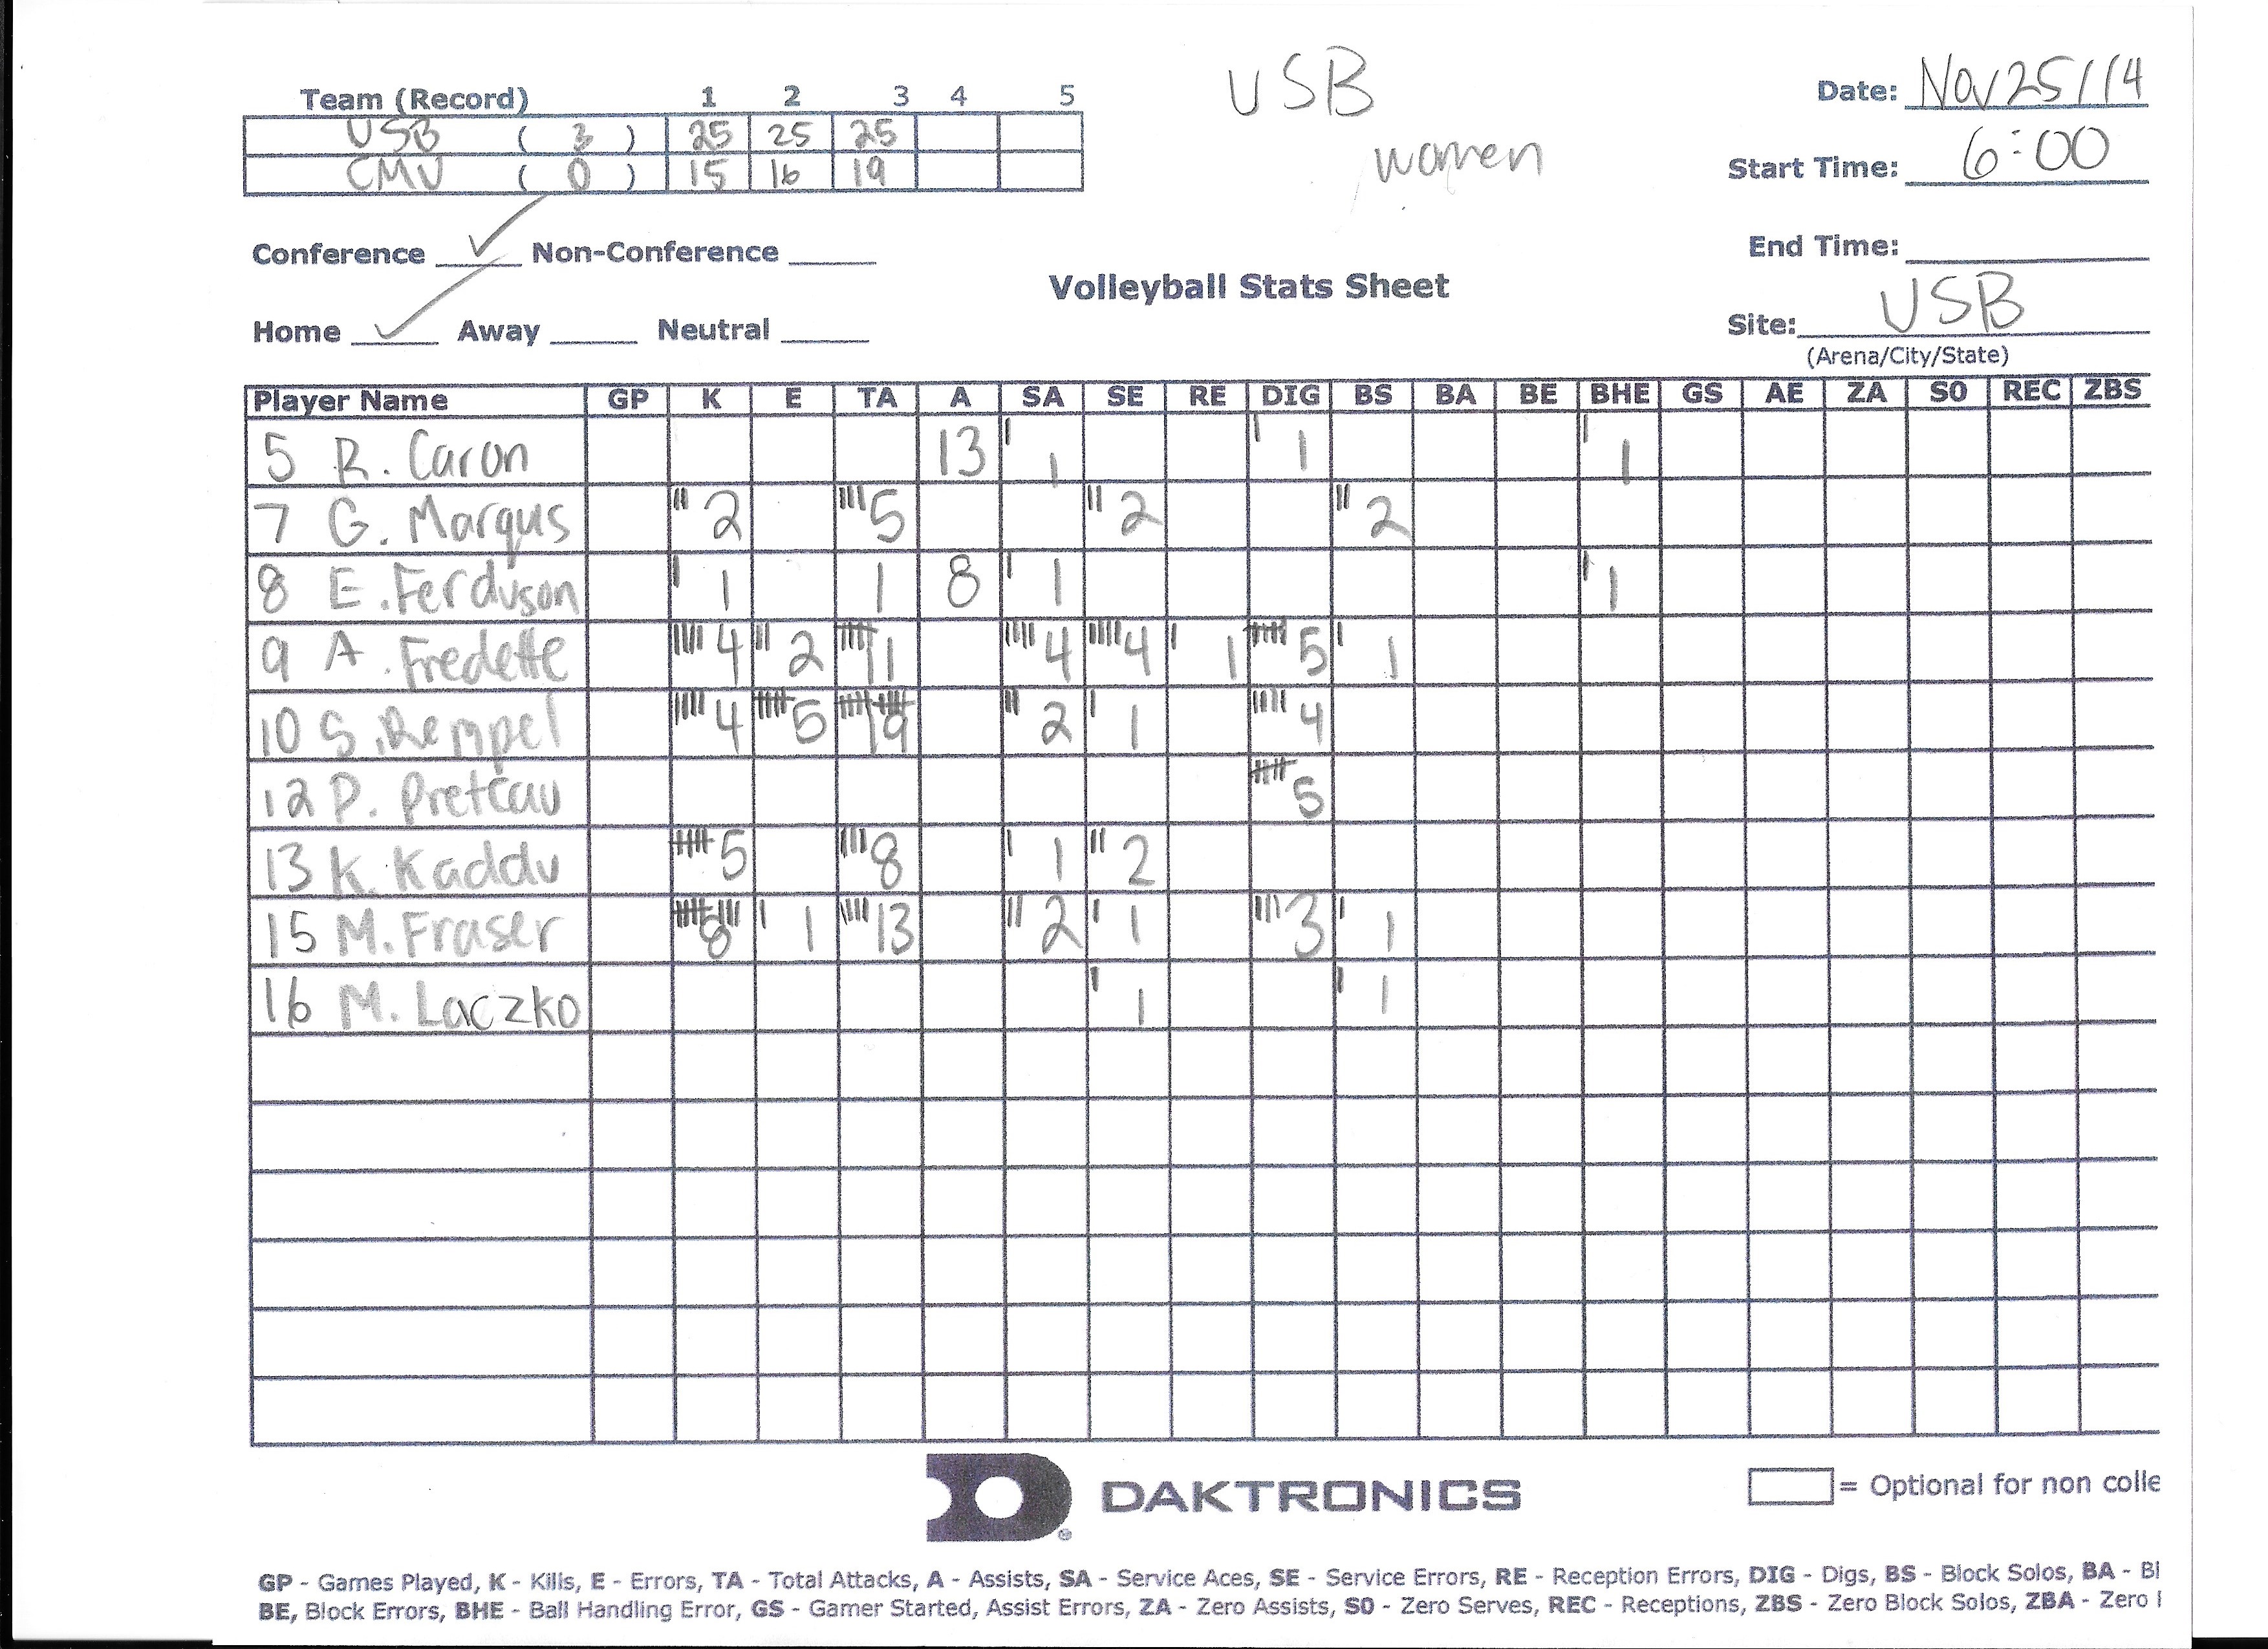 USB
women
Date: Nov 25/14
Start Time: 6:00
End Time:
Site: USB
(Arena/City/State)
Team (Record) 1 2 3 4 5
USB ( 3 ) 25 25 25
CMU ( 0 ) 15 16 19
Conference ✓ Non-Conference
Home ✓ Away Neutral
Volleyball Stats Sheet
Player Name GP K E TA A SA SE RE DIG BS BA BE BHE GS AE ZA SO REC ZBS
5 R. Caron 13 1 1 1
7 G. Marqus 2 5 2 2
8 E. Ferduson 1 1 8 1 1
9 A. Fredette 4 2 11 4 4 1 5 1
10 S. Rempel 4 5 19 2 1 4
12 P. Preteau 5
13 K. Kaddu 5 8 1 2
15 M. Fraser 8 1 13 2 1 3 1
16 M. Laczko 1 1
DAKTRONICS
= Optional for non colle
GP - Games Played, K - Kills, E - Errors, TA - Total Attacks, A - Assists, SA - Service Aces, SE - Service Errors, RE - Reception Errors, DIG - Digs, BS - Block Solos, BA - Bl
BE, Block Errors, BHE - Ball Handling Error, GS - Gamer Started, Assist Errors, ZA - Zero Assists, SO - Zero Serves, REC - Receptions, ZBS - Zero Block Solos, ZBA - Zero